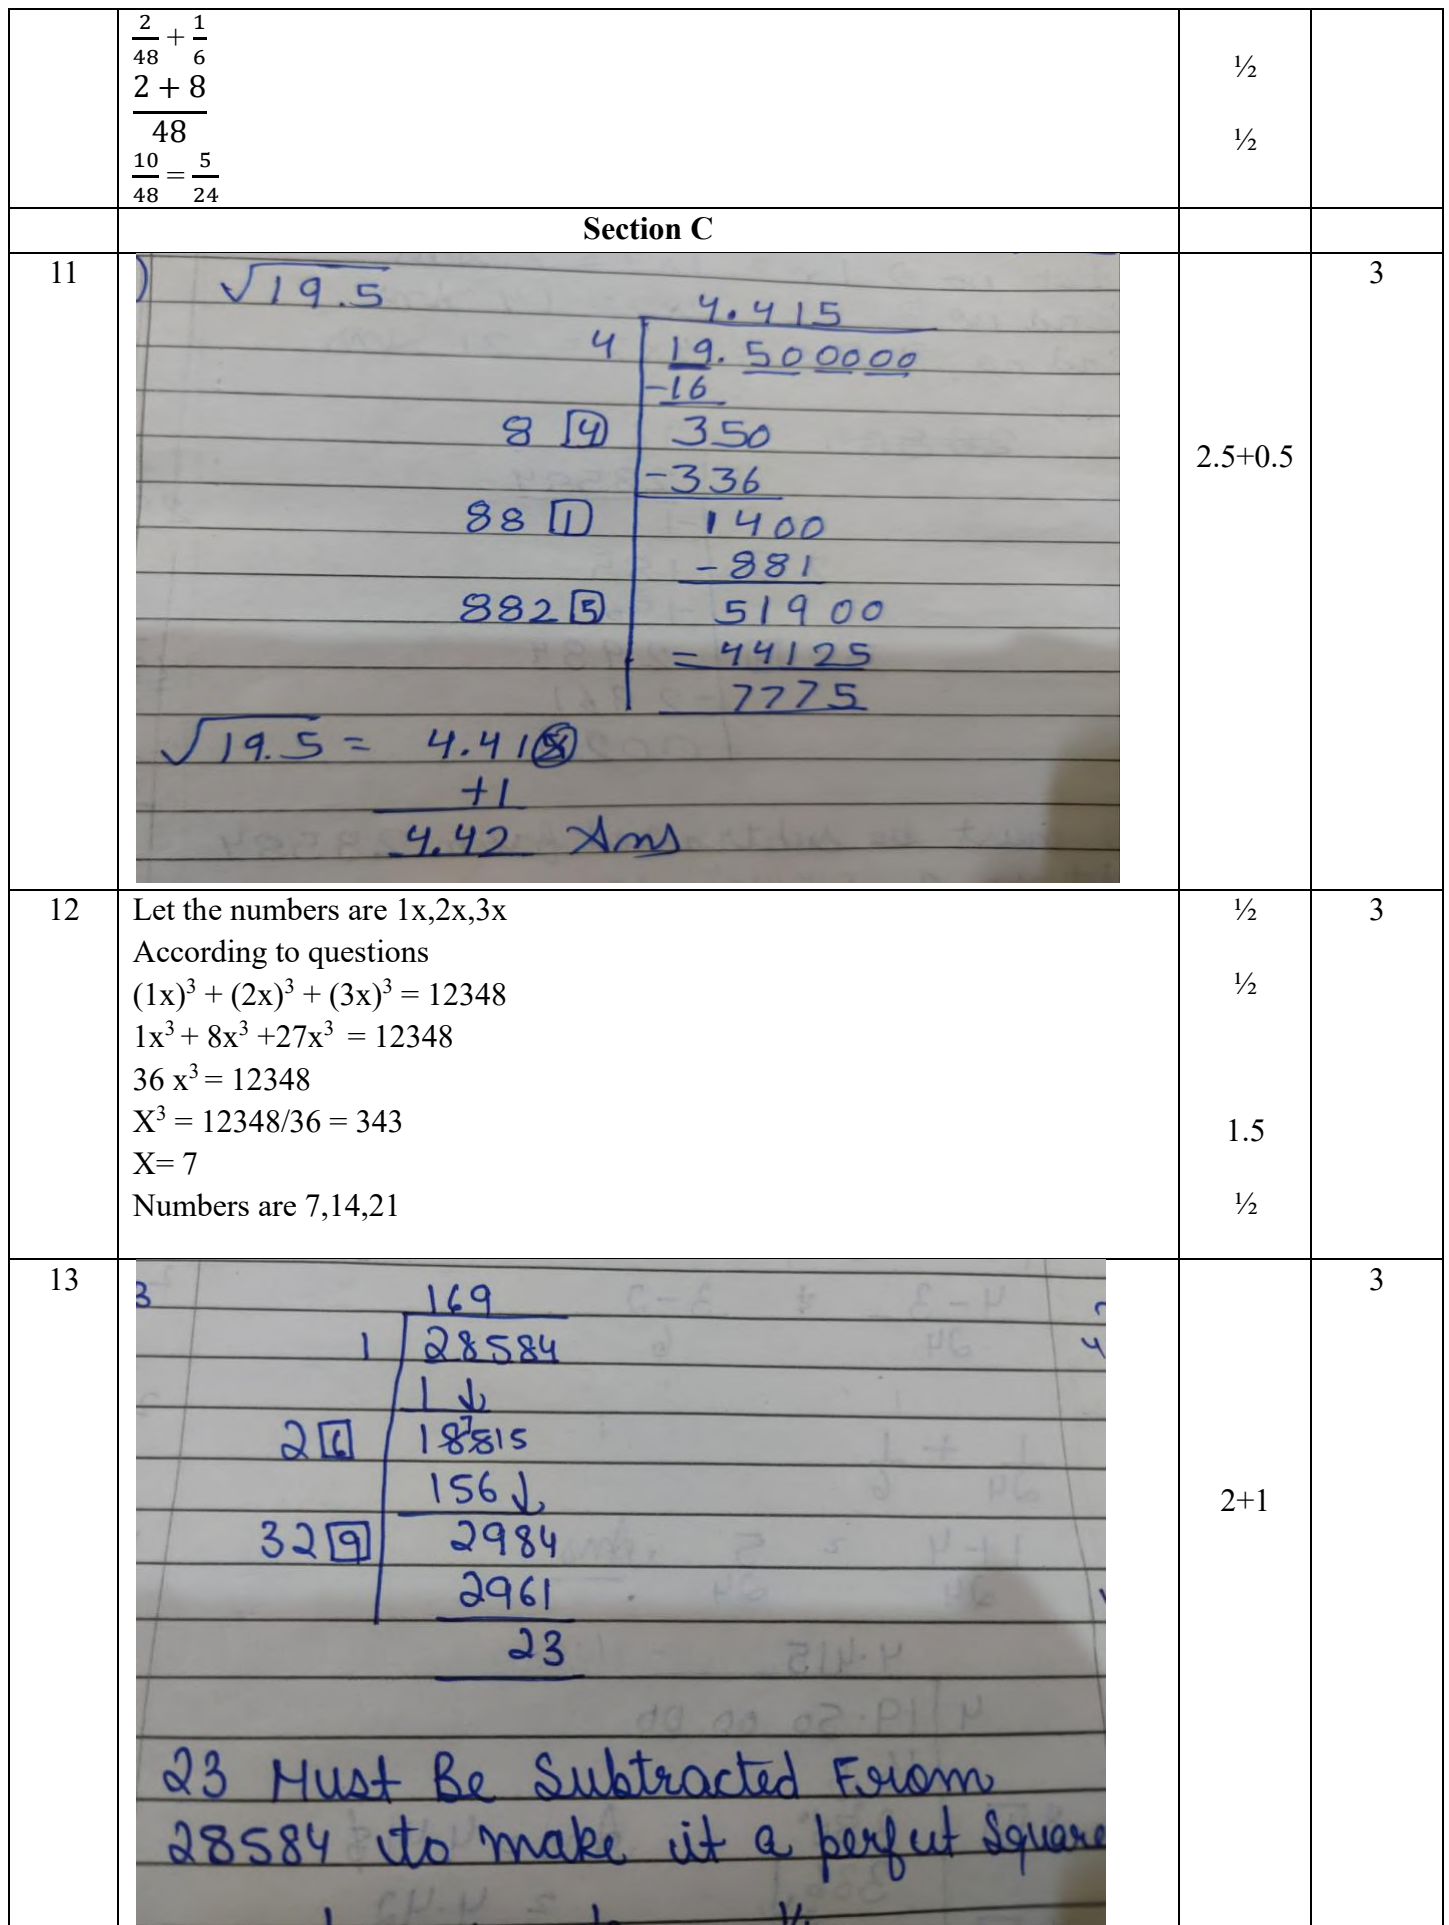 2/48 + 1/6
½
2 + 8
48
½
10/48 = 5/24
Section C
11
3
√19.5
4.415
4 19.500000
-16
8 4 350
-336
2.5+0.5
88 1 1400
-881
882 5 51900
=44125
7775
√19.5 = 4.415
+1
4.42 Ans
12 Let the numbers are 1x,2x,3x ½ 3
According to questions
(1x)³ + (2x)³ + (3x)³ = 12348 ½
1x³ + 8x³ +27x³ = 12348
36 x³ = 12348
X³ = 12348/36 = 343
1.5
X= 7
Numbers are 7,14,21 ½
13
3
3
169
1 28584
1↓
2 6 187815
156↓
2+1
32 9 2984
2961
23
23 Must Be Subtracted From
28584 to make it a perfect Square